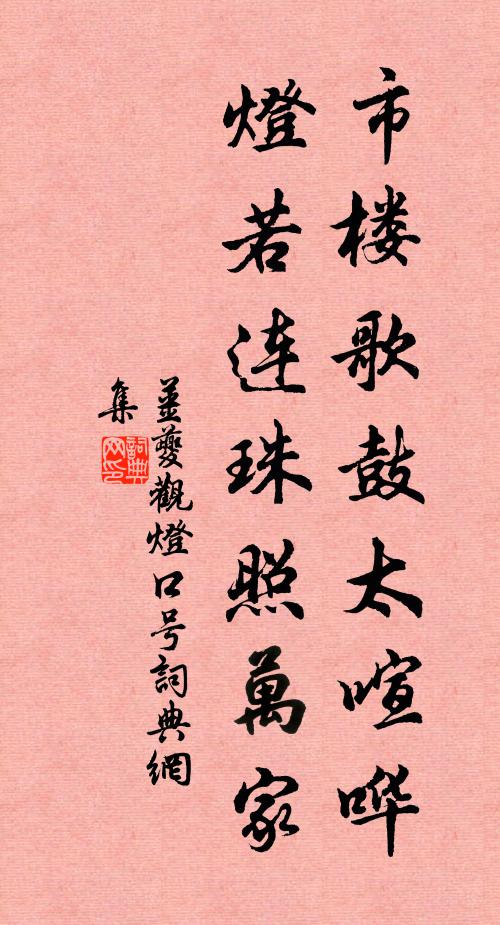 市楼歌鼓太喧哗
燈若连珠照萬家
姜夔觀燈口号詞典網
集
詞典网印